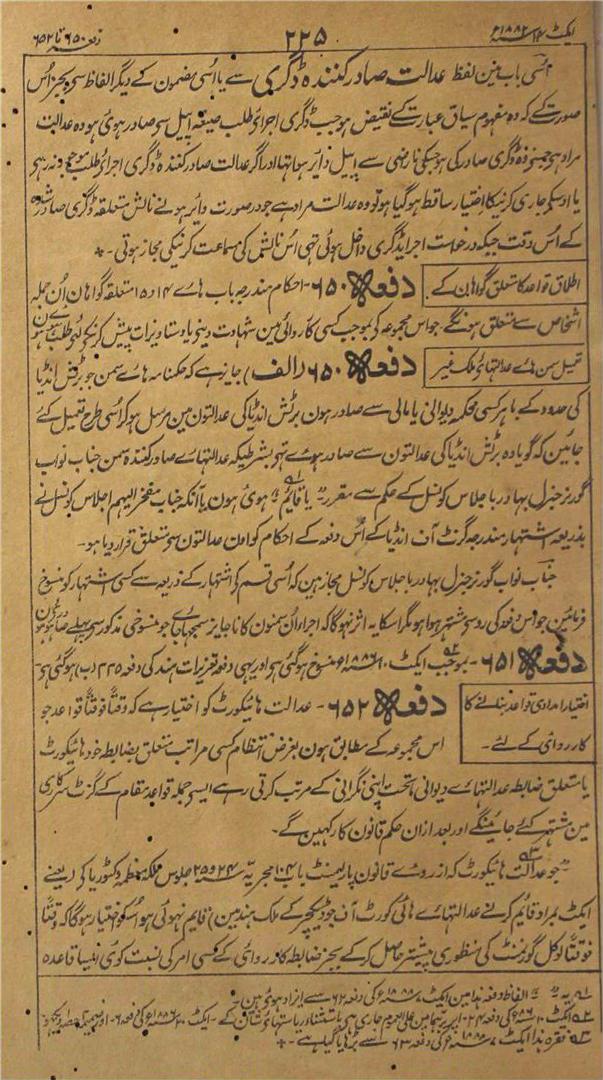 ایکٹ ۱۴ سنہ ۱۸۸۲ء
۲۲۵
دفعہ ۶۵۰ تا ۶۵۲
اُسی باب مین لفظ عدالت صادر کنندہ ڈگری سے یا اُسی مضمون کے دیگر الفاظ سے بجز اُس
صورت کے کہ وہ مفہوم سیاق عبارت کے نقیض ہو جب ڈگری اجراے طلب صیغہ اپیل سی صادر ہوئی ہو وہ عدالت
مراد ہی جسنے وہ ڈگری صادر کی ہو جسکی ناراضی سے اپیل دائر ہوا تھا اور اگر عدالت صادر کنندہ ڈگری اجراے طلب موجود نہ رہی
یا اوسکو جاری کرنیکا اختیار ساقط ہو گیا ہو تو وہ عدالت مراد ہے جو در صورت دائر ہونے نالش متعلقہ ڈگری صادر شدہ
کے اُس وقت جبکہ درخواست اجراے ڈگری داخل ہوئی تھی اُس نالش کی سماعت کرنیکی مجاز ہوتی ۔
اطلاق قواعد کا متعلق گواہان کے ۔
دفعہ ۶۵۰ ۔ احکام مندرجہ باب ہاے ۱۴ و ۱۵ متعلقہ گواہان اُن جملہ
اشخاص سے متعلق ہونگے ۔ جو اس مجموعہ کی بموجب کسی کارروائی مین شہادت دینی یا دستاویزات پیش کرنیکے لئے طلب ہوے ہون
تعمیل سمن ہاے عدالتہاے ملک غیر
دفعہ ۶۵۰ (الف) جایز ہے کہ حکمنامہ ہاے سمن جو برٹش انڈیا
کی حدود کے باہر کسی محکمہ دیوانی یا مالی سے صادر ہون برٹش انڈیا کی عدالتون مین مرسل ہو کر اُسی طرح تعمیل کئے
جائین کہ گویا وہ برٹش انڈیا کی عدالتون سے صادر ہوے تھے بشرطیکہ عدالتہاے صادر کنندہ سمن جناب نواب
گورنر جنرل بہادر باجلاس کونسل کے حکم سے مقرر ؃ یا قایم ؃ ہوئی ہون یا آنکہ جناب مفخر الیہم اجلاس کونسل نے
بذریعہ اشتہار مندرجہ گزٹ آف انڈیا کے اُس دفعہ کے احکام کو اون عدالتون سی متعلق قرار دیا ہو ۔
جناب نواب گورنر جنرل بہادر باجلاس کونسل مجاز ہین کہ اُسی قسم کی اشتہار کے ذریعہ سے کسی اشتہار کو منسوخ
فرمائین جو اس دفعہ کی رو سی مشتہر ہوا ہو مگر اسکا یہ اثر نہوگا کہ اجراء اُن سمنون کا ناجایز سمجھا جاے جو منسوخی مذکور سی پہلے صادر ہوئی ہون
دفعہ ۶۵۱ ۔ بموجب ایکٹ ۱۰ ۱۸۸۶ء منسوخ ہو گئی ہی اور یہی دفعہ تعزیرات ہند کی دفعہ ۲۲۵ (ب) ہو گئی ہی
اختیار امدادی قواعد بنانے کا کارروائی کے لئے ۔
دفعہ ۶۵۲ ۔ عدالت ہائیکورٹ کو اختیار ہے کہ وقتاً فوقتاً قواعد جو
اس مجموعہ کے مطابق ہون بغرض انتظام کسی مراتب متعلق بضابطہ خود ہائیکورٹ
یا متعلق ضابطہ عدالتہاے دیوانی ماتحت اپنی نگرانی کے مرتب کرتی رہے ایسے جملہ قواعد مقام کے گزٹ سرکاری
مین مشتہر کئے جائینگے اور بعد ازان حکم قانون کا رکھین گے ۔
جو عدالت ہائیکورٹ کہ از روے قانون پارلیمنٹ باب ۱۰۴ مجریہ سنہ ۲۴ و ۲۵ جلوس ملکہ معظمہ وکٹوریا کی (یعنے
ایکٹ بمراد قایم کرنے عدالتہاے ہائی کورٹ آف جوڈیکیچر کے ملک ہند مین) قایم نہوئی ہو اُسکو اختیار ہوگا کہ وقتاً
فوقتاً لوکل گورنمنٹ کی منظوری پیشتر حاصل کر کے بجز ضابطہ کارروائی کے کسی امر کی نسبت کوئی ایسا قاعدہ
۹۱ یہ الفاظ دفعہ ہذا مین ایکٹ ۷ ۱۸۸۸ء کی دفعہ ۶۲ سے ایزاد ہوئی ہین ۔
۹۲ ایکٹ ۱۰ ۱۸۸۶ء کی دفعہ ۲۴ ۔
۹۳ فقرہ ہذا ایکٹ ۷ ۱۸۸۸ء کی دفعہ ۶۳ سے بڑہایا گیا ہے ۔